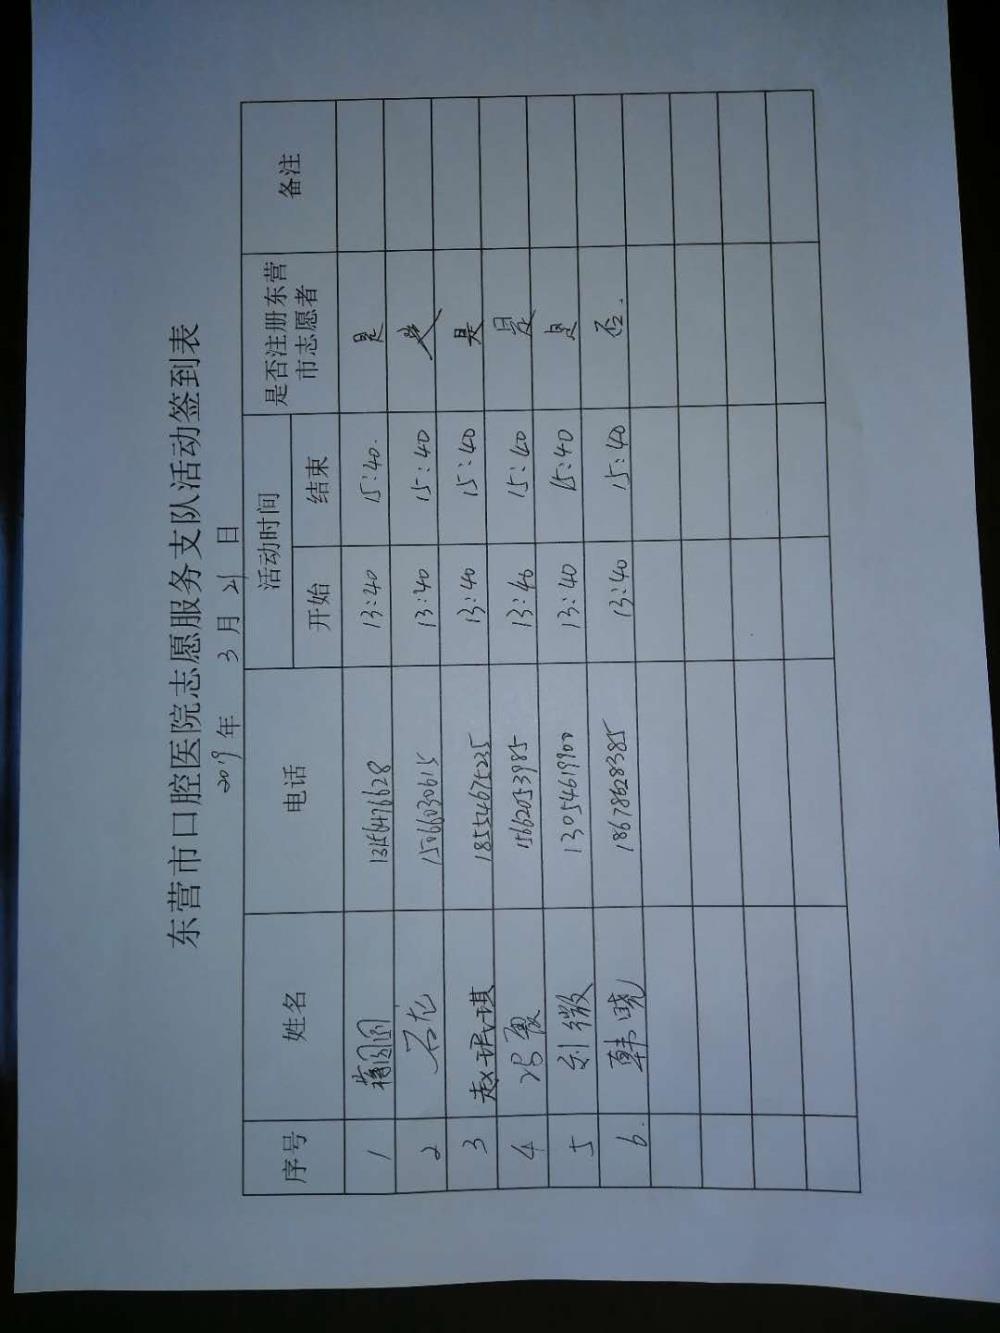 东营市口腔医院志愿服务支队活动签到表
2019年 3月 21日
序号 姓名 电话 活动时间 是否注册东营市志愿者 备注
开始 结束
1 13:40 15:40. 是
2 石龙 15066030615 13:40 15:40 是
3 赵珉琪 18554675235 13:40 15:40 是
4 冯霞 15662053985 13:40 15:40 是
5 刘微 13054619900 13:40 15:40 是
6. 韩晓 18678628385 13:40 15:40 否.